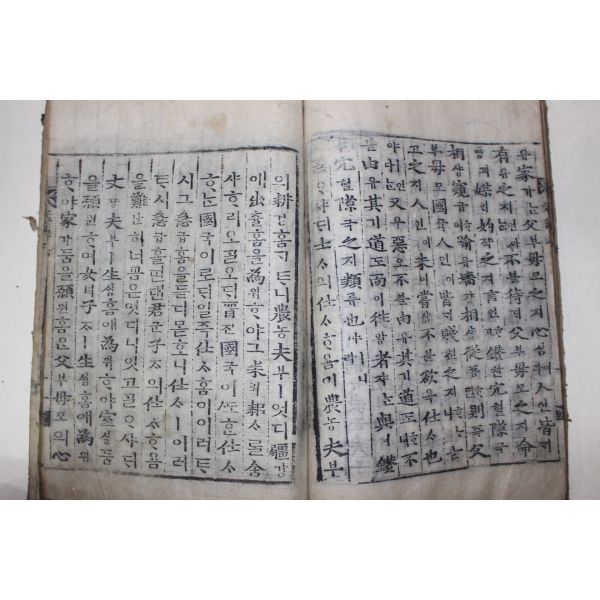 有유家가ᄒᆞᄂᆞ니父부母모之지心심을人인皆ᄀᆡ
有유之지언마ᄂᆞᆫ不블待ᄃᆡ父부母모之지命
명과媒ᄆᆡ妁쟉之지言언ᄒᆞ고鑽찬穴혈隙극
相샹窺규ᄒᆞ며踰유墻쟝相샹從죵ᄒᆞ면則즉父
부母모國국人인이皆ᄀᆡ賤쳔之지ᄒᆞᄂᆞ니古고
之지人인이未미嘗샹不블欲욕仕ᄉᆞ也야
ㅣ언마ᄂᆞᆫ又우惡오不블由유其기道도ᄒᆞ니不
블由유其기道도而이往왕者쟈ᄂᆞᆫ與여鑽
찬穴혈隙극之지類류也야ㅣ니라
ᄀᆞᆯᄋᆞ샤ᄃᆡ士ᄉᆞ의仕ᄉᆞᄒᆞ욤이農농夫부
의耕경홈ᄀᆞᆮᄐᆞ니農농夫부ㅣ엇디疆강
애出츌홈을爲위ᄒᆞ야그耒뢰耜ᄉᆞᄅᆞᆯ舍
샤ᄒᆞ리오ᄀᆞᆯ오ᄃᆡ晉진國국이ᄯᅩᄒᆞᆫ仕ᄉᆞ
ᄒᆞᄂᆞᆫ國국이로ᄃᆡ일즉仕ᄉᆞ홈이이러ᄐᆞ
시그急급홈을듣디몯ᄒᆞ니仕ᄉᆞㅣ이러
ᄐᆞ시急급홀띤댄君군子ᄌᆞ의仕ᄉᆞᄒᆞ욤
을難난히너핌은엇디니잇고ᄀᆞᆯᄋᆞ샤ᄃᆡ
丈댱夫부ㅣ生ᄉᆡᆼ홈애爲위ᄒᆞ야室실둠
을願원ᄒᆞ며女녀子ᄌᆞㅣ生ᄉᆡᆼ홈애爲위
ᄒᆞ야家가둠을願원홈은父부母모의心